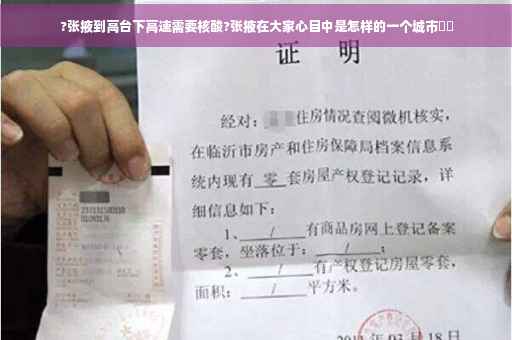 ?张掖到高台下高速需要核酸?张掖在大家心目中是怎样的一个城市
证 明
经对：住房情况查阅微机核实，
在临沂市房产和住房保障局档案信息系
统内现有 零 套房屋产权登记记录，详
细信息如下：
1、 / 有商品房网上登记备案
零套，坐落位于： / ；
2、 / 有产权登记房屋零套，
面积： / 平方米。
03月18日